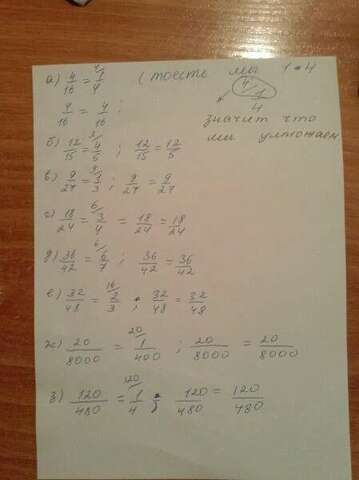 а) 4/16 = 4/ 1/4 (тоесть мы 1*4
4/ 1/4
4/16 = 4/16 ; значит что
мы умножаем
б) 12/15 = 3/ 4/5 ; 12/15 = 12/5
в) 9/27 = 9/ 1/3 ; 9/27 = 9/27
г) 18/24 = 6/ 3/4 = 18/24 = 18/24
д) 36/42 = 6/ 6/7 ; 36/42 = 36/42
е) 32/48 = 16/ 2/3 ; 32/48 = 32/48
ж) 20/8000 = 20/ 1/400 ; 20/8000 = 20/8000
з) 120/480 = 120/ 1/4 ; 120/480 = 120/480